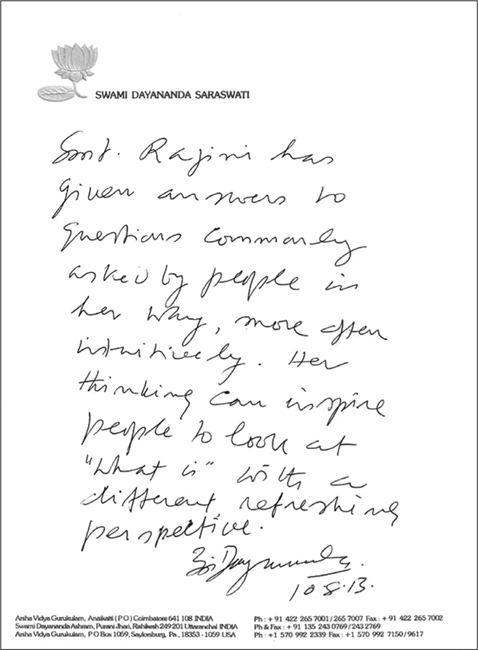 SWAMI DAYANANDA SARASWATI
Smt. Rajini has
given answers to
questions commonly
asked by people in
her way, more often
intuitively. Her
thinking can inspire
people to look at
"What is" with a
different, refreshing
perspective.
10.8.13.
Arsha Vidya Gurukulam, Anaikatti (P O) Coimbatore 641 108 INDIA Ph : + 91 422 265 7001 / 265 7007 Fax : + 91 422 265 7002
Swami Dayananda Ashram, Purani Jhari, Rishikesh 249 201 Uttaranchal INDIA Ph & Fax : + 91 135 243 0769 / 243 2769
Arsha Vidya Gurukulam, P O Box 1059, Saylorsburg, Pa., 18353 - 1059 USA Ph : +1 570 992 2339 Fax : +1 570 992 7150 / 9617